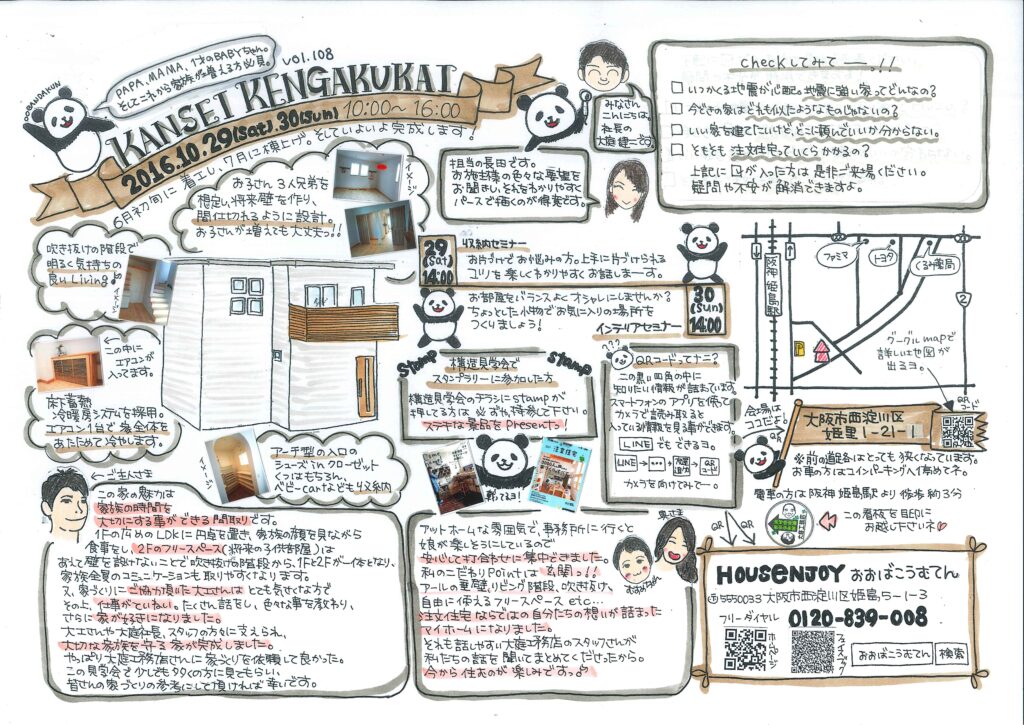 PAPA、MAMA、1才のBABYちゃん。
そしてこれから家族が増える方必見。
VOL.108
OOBANDAKUN
KANSEI KENGAKUKAI
2016.10.29(sat).30(sun) 10:00〜16:00
6月初旬に着工し、7月に棟上げ。そしていよいよ完成します!
みなさん
こんにちは。
社長の
大庭健一です。
担当の長田です。
お施主様の色々な要望を
お聞きし、それをわかりやすく
パースで描くのが得意です。
checkしてみてー.!!
□ いつかくる地震が心配。地震に強い家ってどんなの?
□ 今どきの家はどれも似たようなものじゃないの?
□ いい家を建てたいけど、どこに頼んでいいか分からない。
□ そもそも注文住宅っていくらかかるの?
上記に☑が入った方は是非ご来場ください。
疑問や不安が解消できますよ。
お子さん3人兄弟を
想定し、将来壁を作り、
間仕切れるように設計。
お子さんが増えても大丈夫っ!!
イメージ
吹き抜けの階段で
明るく気持ちの
良いLiving♪
イメージ
この中に
エアコンが
入ってます。
床下蓄熱
冷暖房システムを採用。
エアコン1台で家全体を
あたためて冷やします。
イメージ
アーチ型の入口の
シューズinクローゼット
くつはもちろん、
ベビーcarなども収納
29
(Sat)
14:00
収納セミナー
お片づけでお悩みの方。上手に片づけられる
コツを楽しくわかりやすくお話しまーす。
お部屋をバランスよくオシャレにしませんか?
ちょっとした小物でお気に入りの場所を
つくりましょう!
インテリアセミナー
30
(Sun)
14:00
Stamp
構造見学会で
スタンプラリーに参加した方
stamp
構造見学会のチラシにstampが
押してる方は必ずお持参して下さい。
ステキな景品をPresentっ♪
載ってるヨ!
注文住宅
???
QRコードってナニ?
この黒い四角の中に
知りたい情報が詰まっています。
スマートフォンのアプリを使って
カメラで読み取ると
入っている情報を見る事ができます。
LINEでもできるヨ。
LINE→•••→友達追加→QRコード
カメラを向けてみてー。
阪神 姫島駅
ファミマ
トヨタ
くるみ薬局
2
P
グーグルmapで
詳しい地図が
出るヨ。
QRコード
会場は
ココだよ。
大阪市西淀川区
姫里1-21-1
※前の道路はとっても狭くなっています。
お車の方はコインパーキングへ停めてネ。
電車の方は阪神姫島駅より徒歩約3分
この看板を目印に
お越し下さいネ♡
QR
QR
HOUSENJOY おおばこうむてん
〒5550033大阪市西淀川区姫島,5-1-3
フリーダイヤル 0120-839-008
ホームページ
フェイスブック
おおばこうむてん 検索
ご主人さま
この家の魅力は
家族の時間を
大切にする事ができる間取りです。
1Fの広めのLDKに円卓を置き、家族の顔を見ながら
食事をし、2Fのフリースペース(将来の子供部屋)は
あえて壁を設けないことで吹き抜けの階段から、1Fと2Fが一体となり、
家族全員のコミュニケーションも取りやすくなります。
又、家づくりにご協力頂いた工さんは とても気さくな方で
その上、仕事がていねい。たくさん話をし、色々な事を教わり、
さらに家が好きになりました。
大工さんや大庭社長、スタッフの方々に支えられ、
大切な家族を守る家が完成しました。
やっぱり大庭工務店さんに家づくりを依頼して良かった。
この見学会で少しでも多くの方に見てもらい、
皆さんの家づくりの参考にして頂ければ幸いです。
奥さま
アットホームな雰囲気で、事務所に行くと
娘が楽しそうにしているので
安心して打合わせに集中できました。
私のこだわりPointは玄関っ!!
アールの垂壁、リビング階段、吹きぬけ、
自由に使えるフリースペース etc...
注文住宅ならではの自分たちの想いが詰まった
マイホームになりました。
それも話しやすい大庭工務店のスタッフさんが
私たちの話を聞いてまとめてくださったから。
今から住むのが楽しみですっ♪